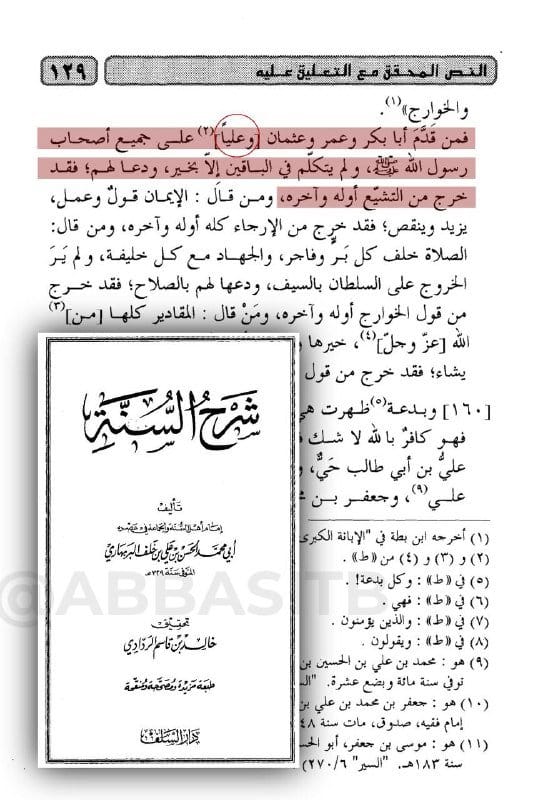 النص المحقق مع التعليق عليه
١٢٩
والخوارج»(١).
فمن قَدَّمَ أبا بكر وعمر وعثمان [وعلياً](٢) على جميع أصحاب
رسول الله ﷺ، ولم يتكلّم في الباقين إلاّ بخير، ودعا لهم؛ فقد
خرج من التشيّع أوله وآخره، ومن قال : الإيمان قولٌ وعمل،
يزيد وينقص؛ فقد خرج من الإرجاء كله أوله وآخره، ومن قال:
الصلاة خلف كل بَرٍّ وفاجر، والجهاد مع كل خليفة، ولم يَرَ
الخروج على السلطان بالسيف، ودعا لهم بالصلاح؛ فقد خرج
من قول الخوارج أوله وآخره، ومَنْ قال : المقادير كلها [من](٣)
الله [عزّ وجلّ](٤)، خيرها و
يشاء؛ فقد خرج من قول
[١٦٠] وبدعة(٥) ظهرت هي
فهو كافرٌ با لله لا شك ف
عليُّ بن أبي طالب حَيٌّ، و
علي(٩)، وجعفر بن م
(١) أخرجه ابن بطة في "الإبانة الكبرى
(٢) و (٣) و (٤) من «ط» .
(٥) في «ط» : وكل بدعة!.
(٦) في «ط» : فهي .
(٧) في «ط» : والذين يؤمنون .
(٨) في «ط» : ويقولون .
(٩) هو : محمد بن علي بن الحسين بن
توفي سنة مائة وبضع عشرة. "الس
(١٠) هو : جعفر بن محمد بن علي بن
إمام فقيه، صدوق، مات سنة ٤٨
(١١) هو : موسى بن جعفر، أبو الحس
سنة ١٨٣هـ. "السير" ٢٧٠/٦)
شَرْحُ السُّنَّةِ
تأليف
إمام أهل السنة والجماعة في عصره
أبي محمد الحسن بن علي بن خلف البربهاري
المتوفى سنة ٣٢٩هـ
تحقيق
خالد بن قاسم الردادي
طبعة مزيدة ومصححة ومنقحة
دار السلف
@ABBAS.TB